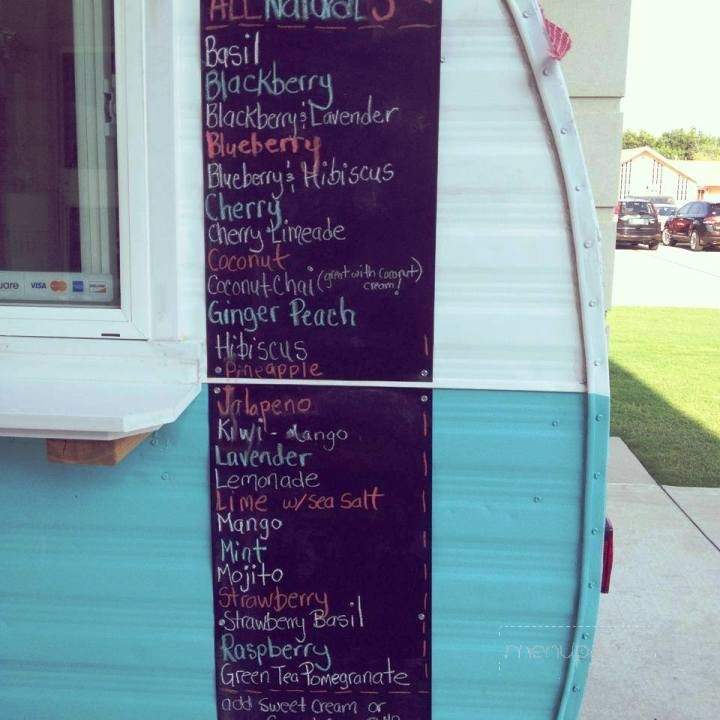 ALL Natural
Basil
Blackberry
Blackberry & Lavender
Blueberry
Blueberry & Hibiscus
Cherry
Cherry Limeade
Coconut
Coconut Chai (great with coconut cream!)
Ginger Peach
Hibiscus
Pineapple
Jalapeno
Kiwi - Mango
Lavender
Lemonade
Lime w/sea salt
Mango
Mint
Mojito
Strawberry
Strawberry Basil
Raspberry
Green Tea Pomegranate
add sweet cream or
uare VISA
menup